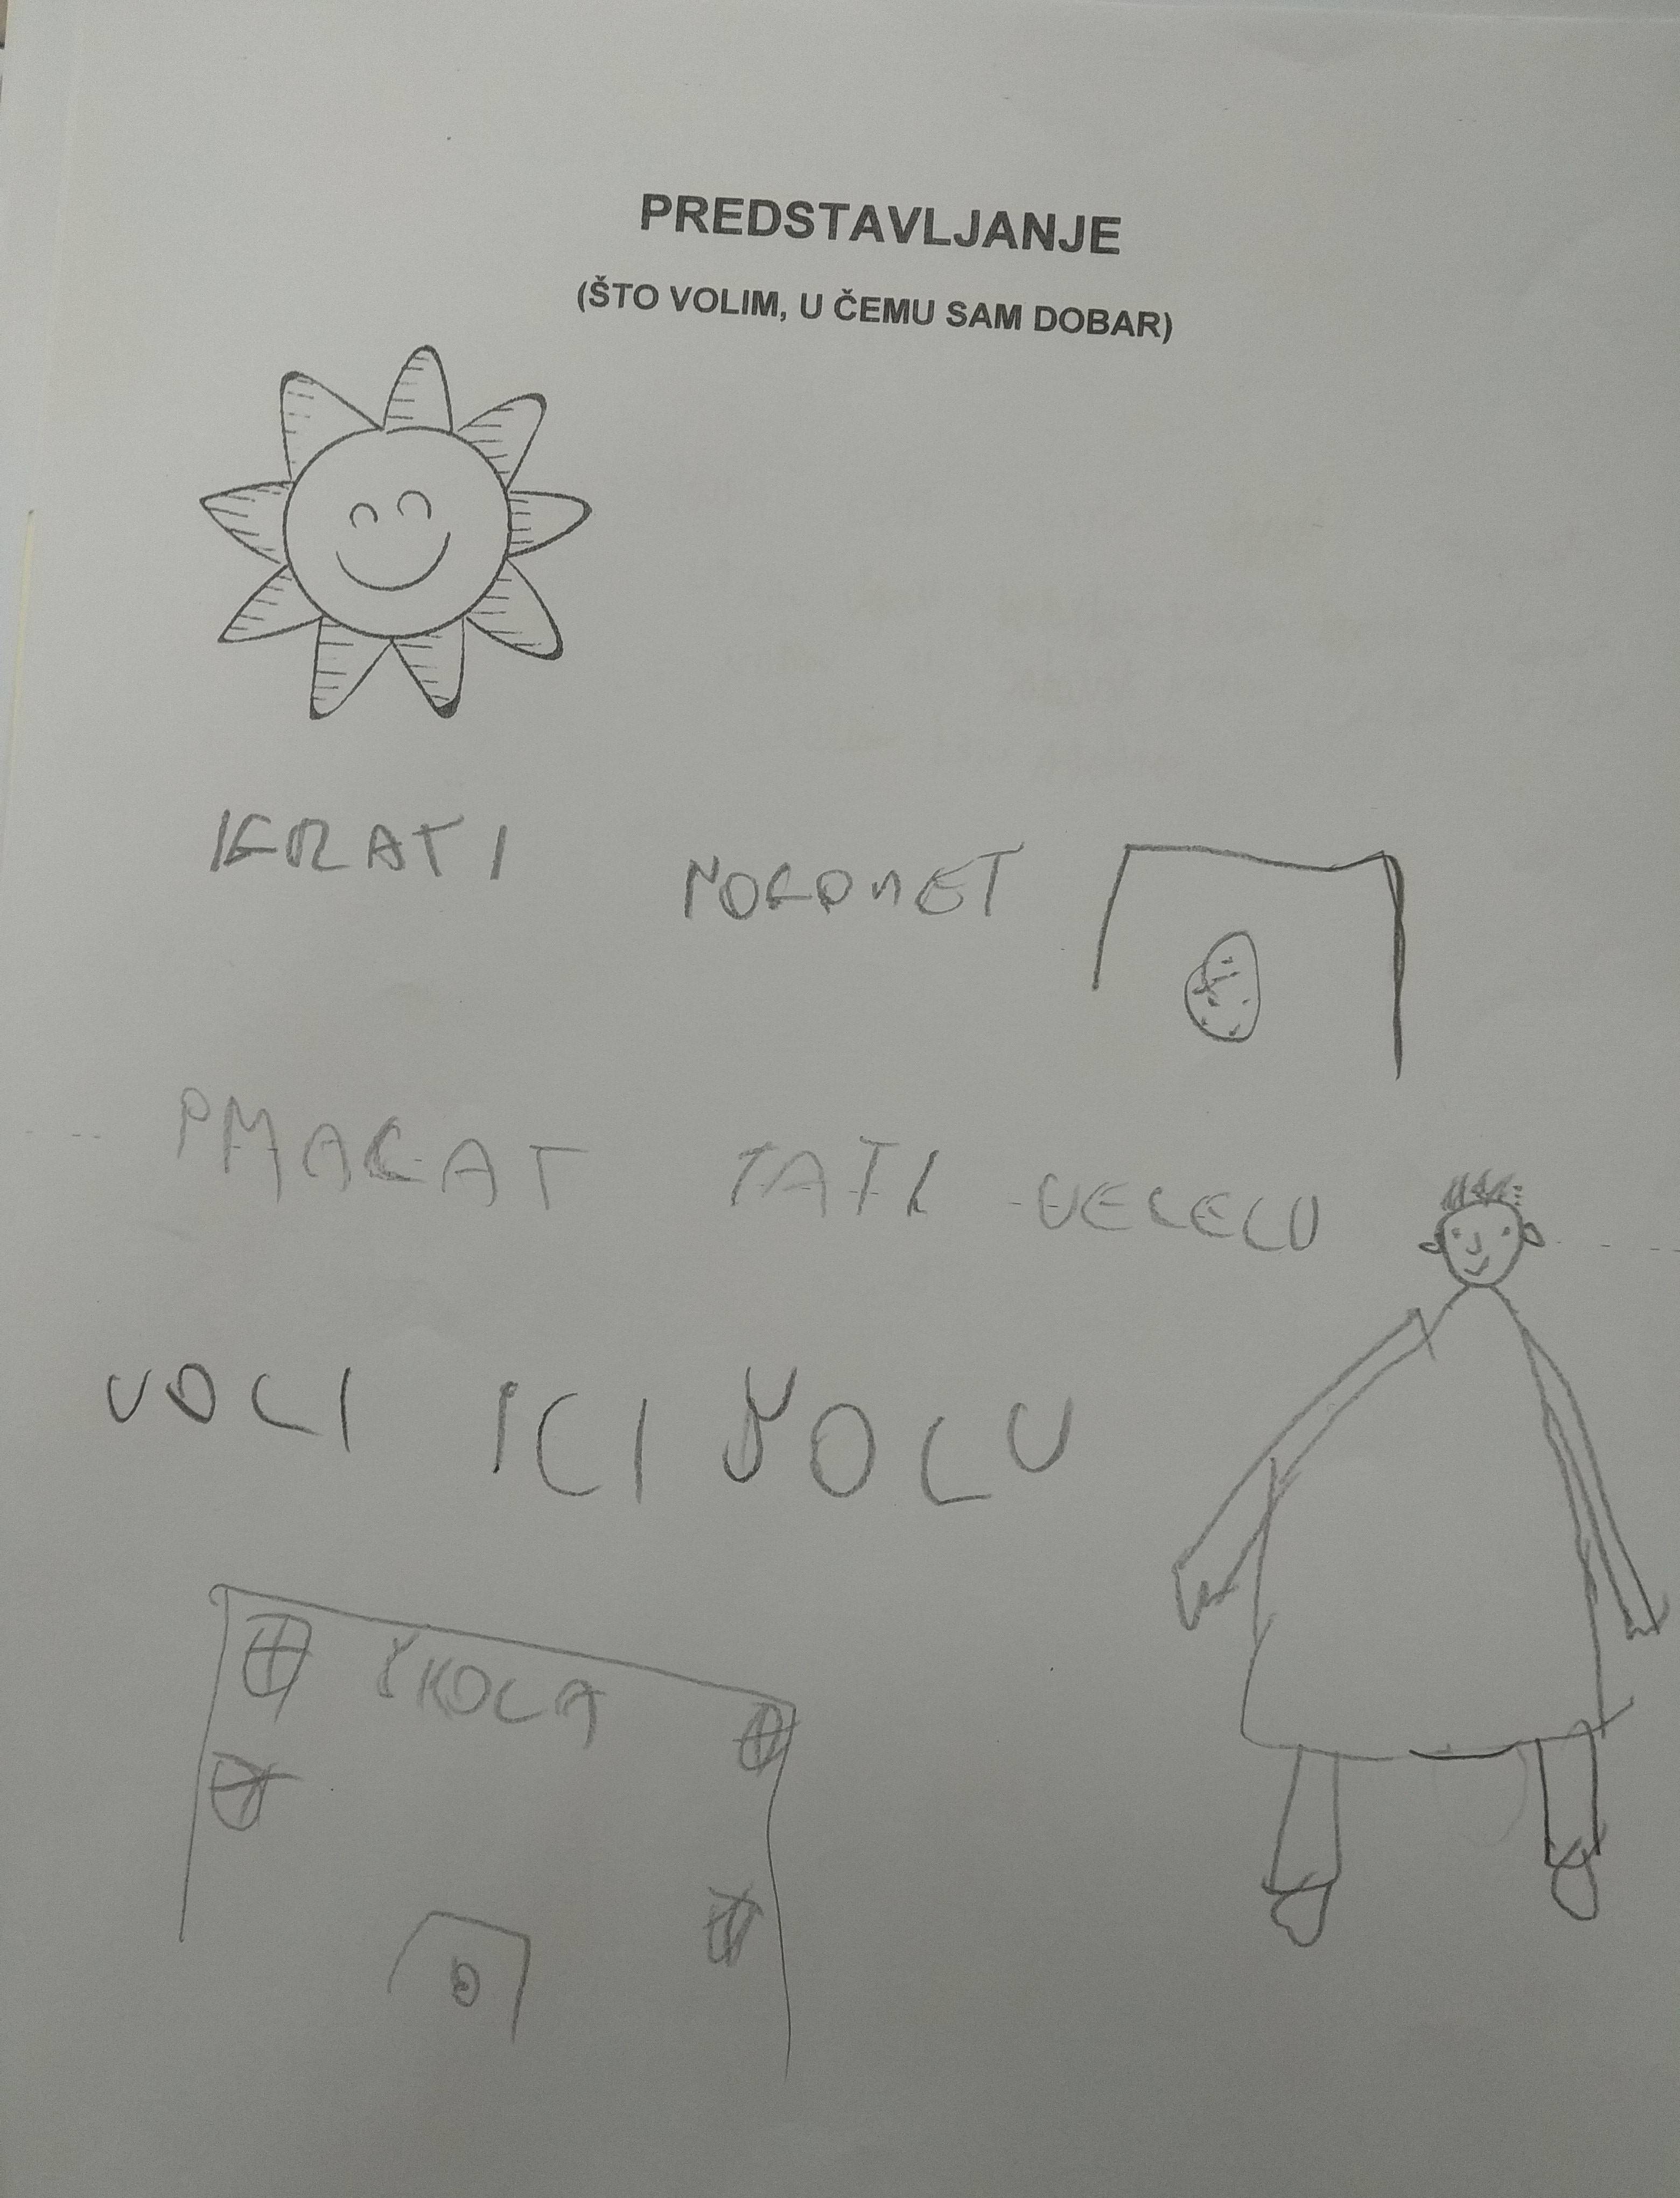 PREDSTAVLJANJE
(ŠTO VOLIM, U ČEMU SAM DOBAR)
IGRATI NOGOMET
PMAGAT TATI VELELU
VOLI ICI ŠOLU
ŠKOLA